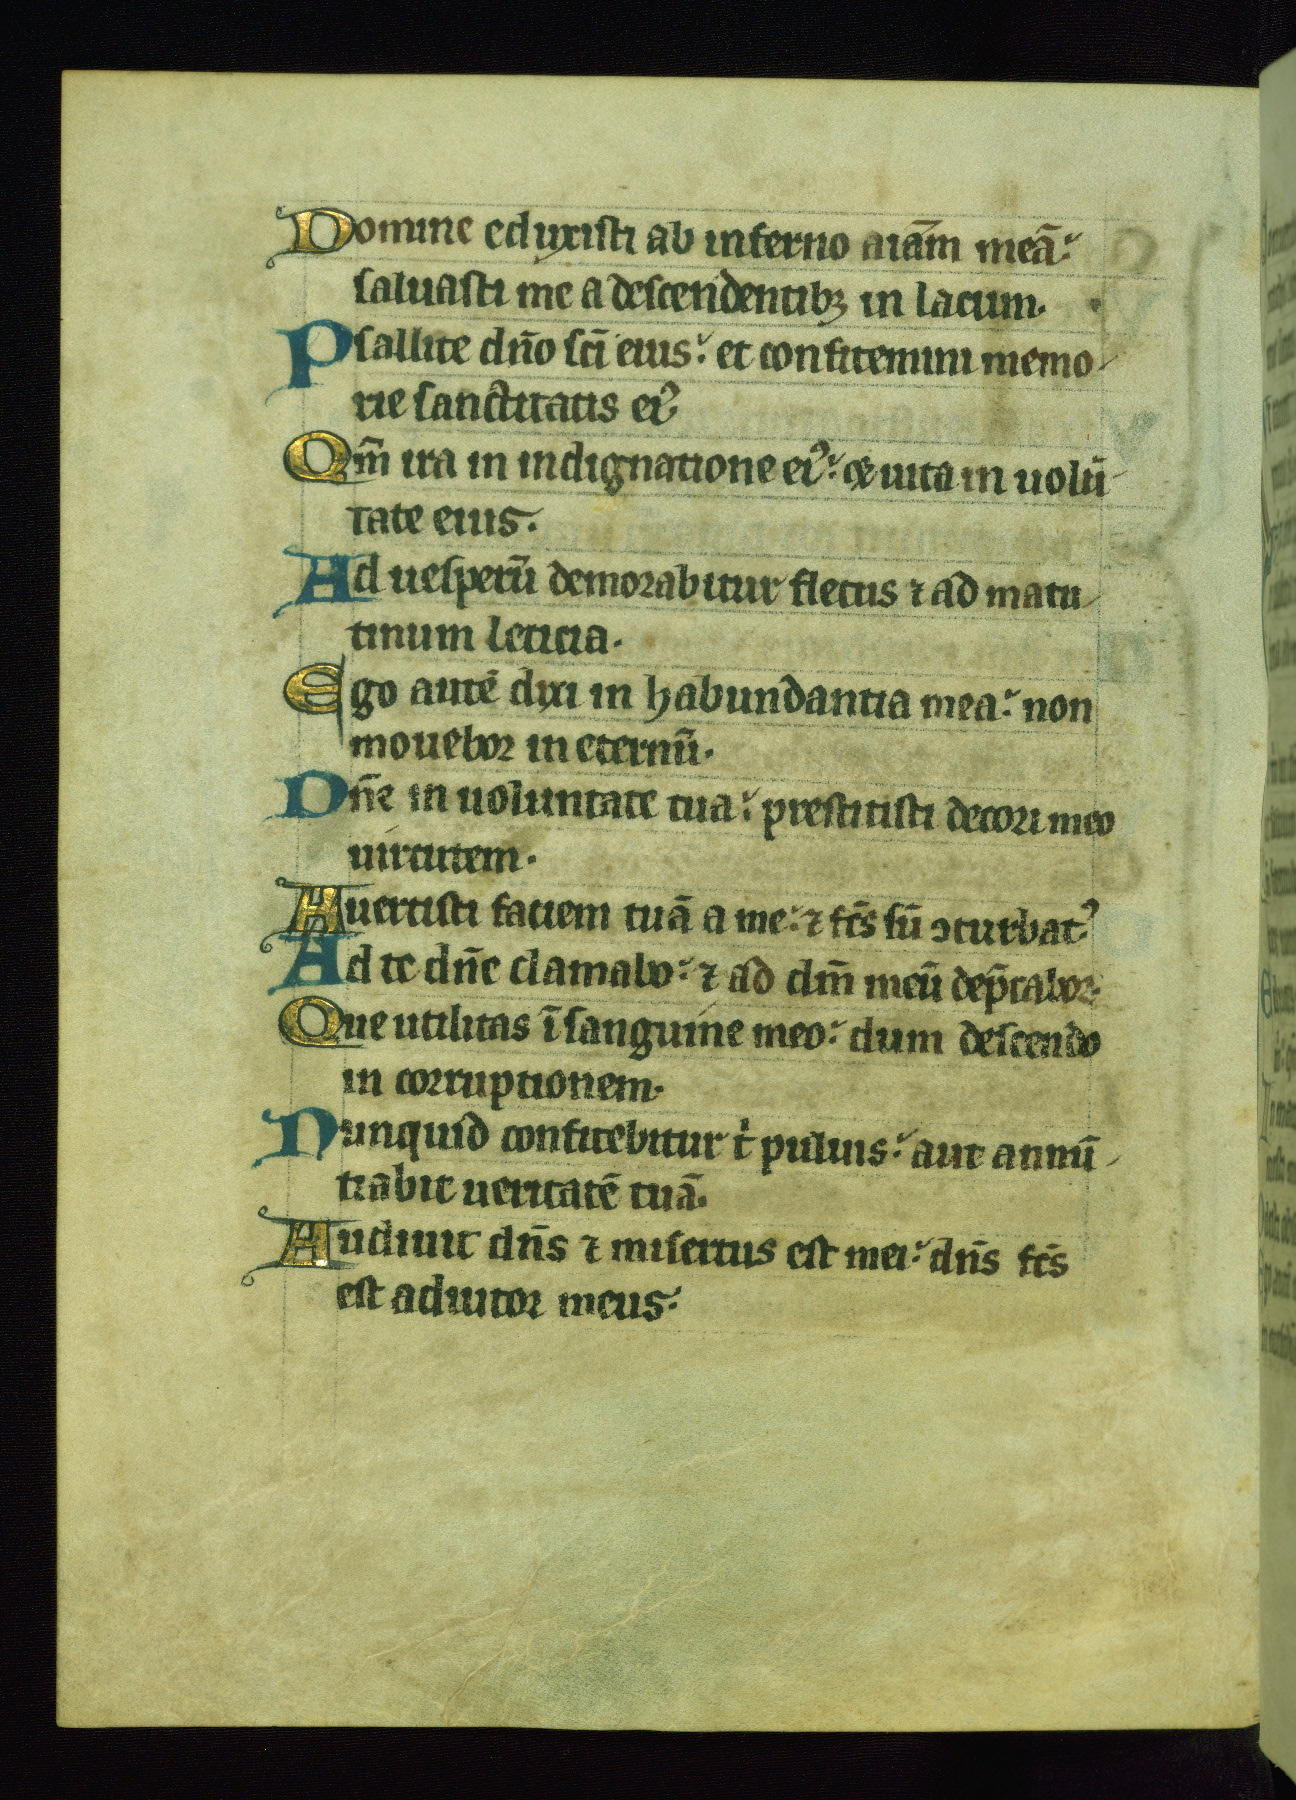 Domine eduxisti ab inferno aiām meā:
saluasti me a descendentibꝫ in lacum.
Psallite dn̄o sc̄i eius: et confitemini memo
rie sanctitatis eiꝰ
Qm̄ ira in indignatione eiꝰ: et uita in uolū
tate eius.
Ad uesperū demorabitur fletus ⁊ ad matu
tinum leticia.
Ego autē dixi in habundantia mea: non
mouebor in eternū.
Dn̄e in uoluntate tua: prestitisti decori meo
uirtutem.
Auertisti faciem tuā a me: ⁊ fc̄s sū ↄturbatꝰ
Ad te dn̄e clamabo: ⁊ ad dm̄ meū dep̄cabor.
Que utilitas ī sanguine meo: dum descendo
in corruptionem.
Nunquid confitebitur tⁱ puluis: aut annū
tiabit ueritatē tuā.
Audiuit dn̄s ⁊ misertus est mei: dn̄s fc̄s
est adiutor meus: